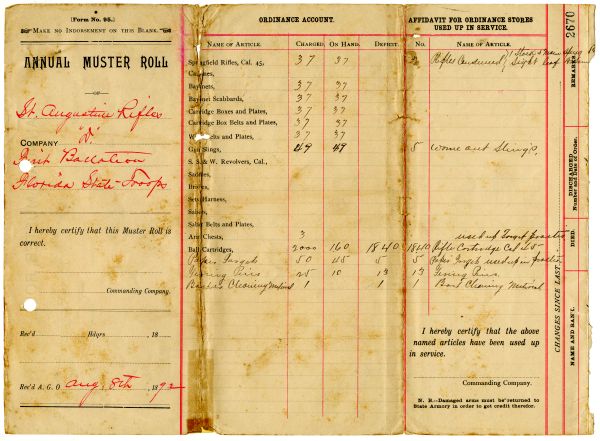 (Form No. 95.)
MAKE NO INDORSEMENT ON THIS BLANK.
ANNUAL MUSTER ROLL
—OF—
St. Augustine Rifles
COMPANY "D".
First Battalion
Florida State Troops
I hereby certify that this Muster Roll is
correct.
Commanding Company.
Rec'd Hdqrs. 18
Rec'd A. G. O. Aug 8th, 1892
ORDINANCE ACCOUNT.
NAME OF ARTICLE. CHARGED. ON HAND. DEFICIT.
Springfield Rifles, Cal. 45, 37 37
Carbines,
Bayonets, 37 37
Bayonet Scabbards, 37 37
Cartridge Boxes and Plates, 37 37
Cartridge Box Belts and Plates, 37 37
Waist Belts and Plates, 37 37
Gun Slings, 49 49
S. & W. Revolvers, Cal.,
Saddles,
Bridles,
Sets Harness,
Sabers,
Saber Belts and Plates,
Arm Chests, 3
Ball Cartridges, 2000 160 1840
Paper Targets 50 45 5
Firing Pins 25 10 13
Cleaning Material 1 1
AFFIDAVIT FOR ORDINANCE STORES
USED UP IN SERVICE.
No. NAME OF ARTICLE.
Rifles Condemned
5 worn out Slings.
used up Target practice
1840 Rifle Cartridge Cal 45
5 Paper Targets used up in practice
13 Firing Pins.
1 Cleaning Material
I hereby certify that the above
named articles have been used up
in service.
Commanding Company.
N. B.—Damaged arms must be returned to
State Armory in order to get credit therefor.
2670
REMARKS.
DISCHARGED
Number and Date of Order.
DIED.
CHANGES SINCE LAST
NAME AND RANK.